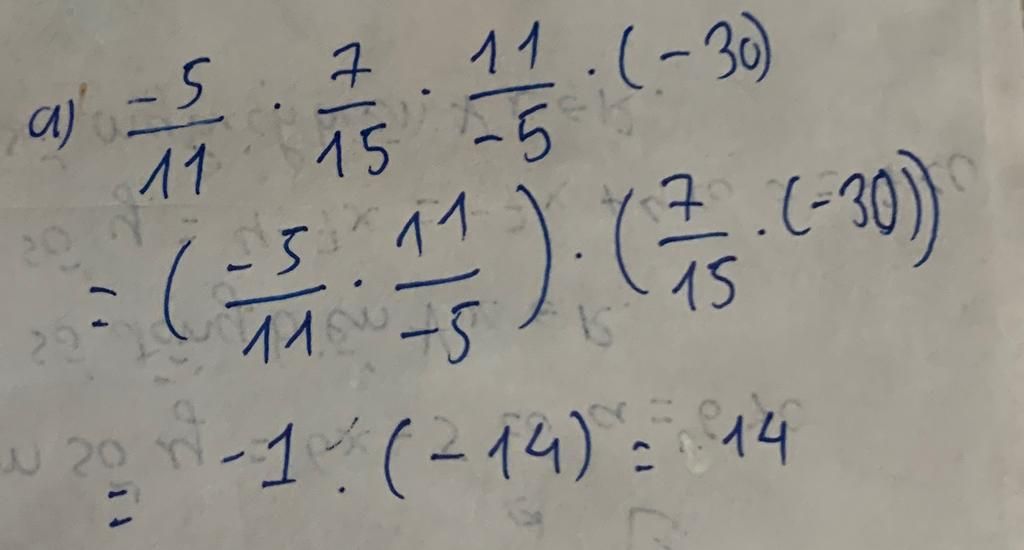 a) -5/11 · 7/15 · 11/-5 · (-30)
= (-5/11 · 11/-5) · (7/15 · (-30))
= -1 · (-14) = 14